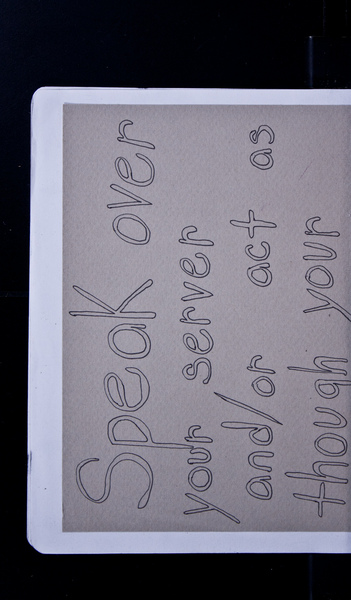 Speak over
your server
and/or act as
though your